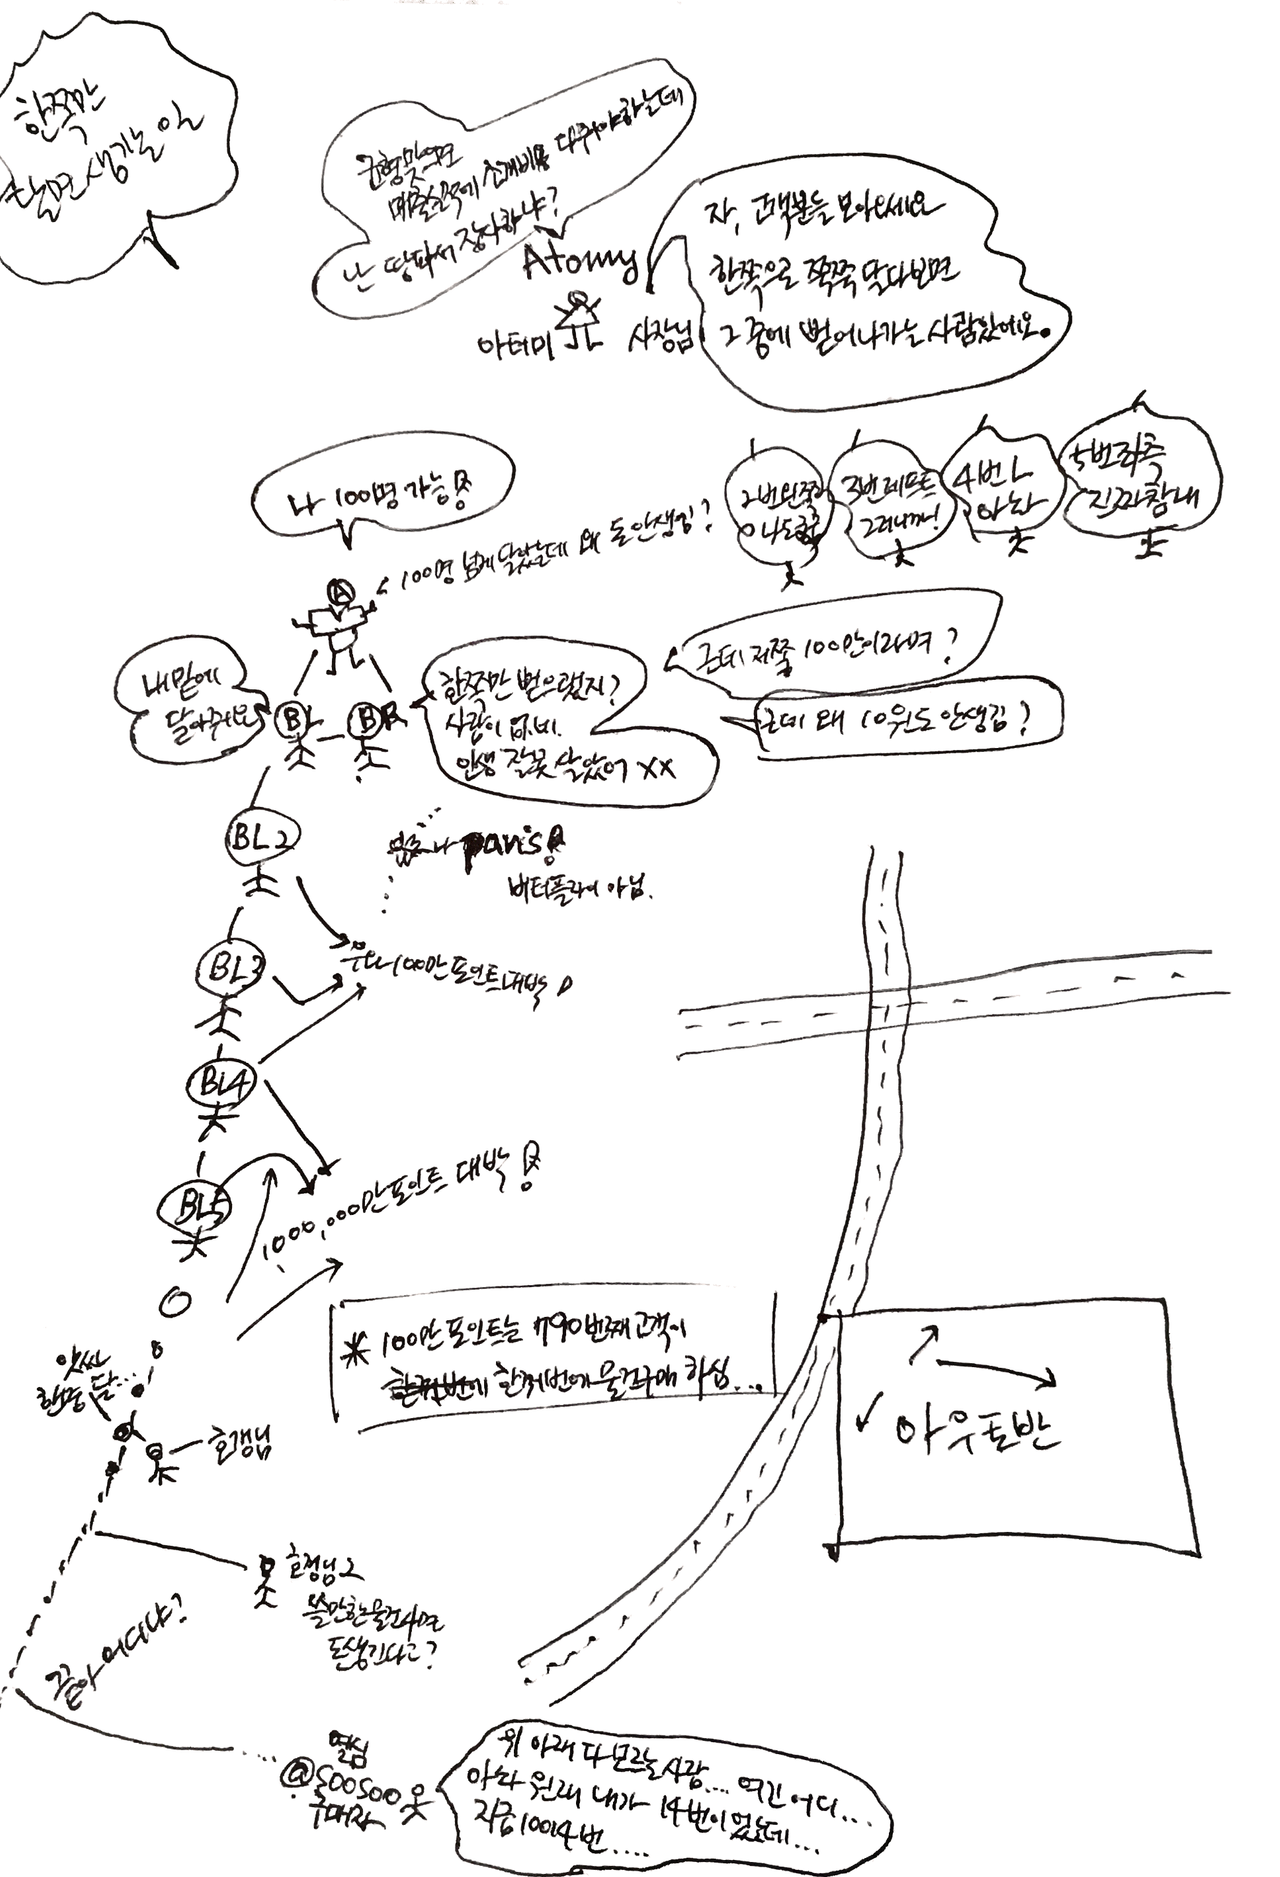 한쪽만
달면 생기는 일
균형맞으면
매출실적에 소개비용 다줘야하는데
난 땅파서 장사하냐?
Atomy
아터미
사장님
자, 고객분들 모아오세요
한쪽으로 쭉쭉 달다보면
그 중에 벌어나가는 사람있어요.
나 100명 가능!
100명 넘게 달았는데 왜 돈안생김?
2번왼쪽
3번레프트
그러니까!
4번L
아놔
5번좌측
진짜참내
A
내밑에
달아줘요
BL
BR
한쪽만 벌으랬지?
사람이 없네.
인생 잘못 살았어 xx
근데 저쪽 100만이라며?
근데 왜 10원도 안생김?
BL2
paris!
버터플라이 아님.
BL3
100만 포인트 대박!
BL4
BL5
1,000,000만 포인트 대박!
* 100만 포인트는 790번째 고객이
한꺼번에 물건구매 하심...
앗싸
한명 달...
호갱님
아우토반
호갱님2
쓸만한 물건사면
돈생긴다고?
끝이 어디냐?
열심
@soosoo
구매자
위 아래 다 모르는 사람.... 여긴 어디...
아놔 원래 내가 14번이었는데...
지금 10014번....